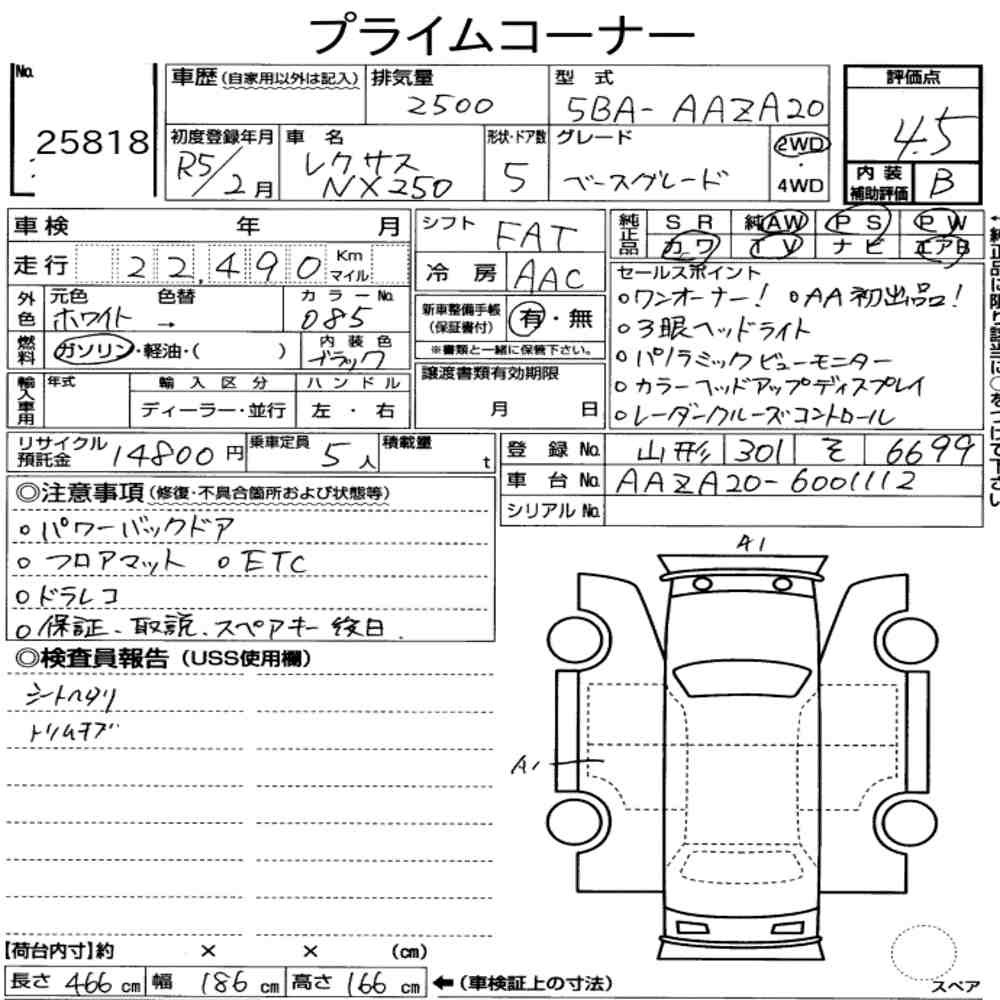 プライムコーナー
No. 25818
車歴(自家用以外は記入) 排気量 2500 型式 5BA-AAZA20
評価点 4.5
初度登録年月 R5/2月 車名 レクサス NX250 形状・ドア数 5 グレード ベースグレード 2WD・4WD
内装補助評価 B
車検 年 月 シフト FAT
純正品 SR 純AW PS PW
カワ TV ナビ エアB
走行 22,490 Km マイル 冷房 AAC
外色 元色 ホワイト 色替 → カラーNo. 085
新車整備手帳(保証書付) 有・無
※書類と一緒に保管下さい。
燃料 ガソリン・軽油・( ) 内装色 ブラック
譲渡書類有効期限 月 日
輸入車用 年式 輸入区分 ハンドル
ディーラー・並行 左・右
セールスポイント
○ワンオーナー! ○AA初出品!
○3眼ヘッドライト
○パノラミックビューモニター
○カラーヘッドアップディスプレイ
○レーダークルーズコントロール
←純正品に限り該当に○をつけて下さい
リサイクル預託金 14800円 乗車定員 5人 積載量 t
登録No. 山形 301 そ 6699
車台No. AAZA20-6001112
シリアルNo.
◎注意事項(修復・不具合箇所および状態等)
○パワーバックドア
○フロアマット ○ETC
○ドラレコ
○保証、取説、スペアキー後日
◎検査員報告(USS使用欄)
シートヘタリ
トリムキズ
A1
A1
【荷台内寸】約 × × (cm)
長さ 466cm 幅 186cm 高さ 166cm ←(車検証上の寸法)
スペア